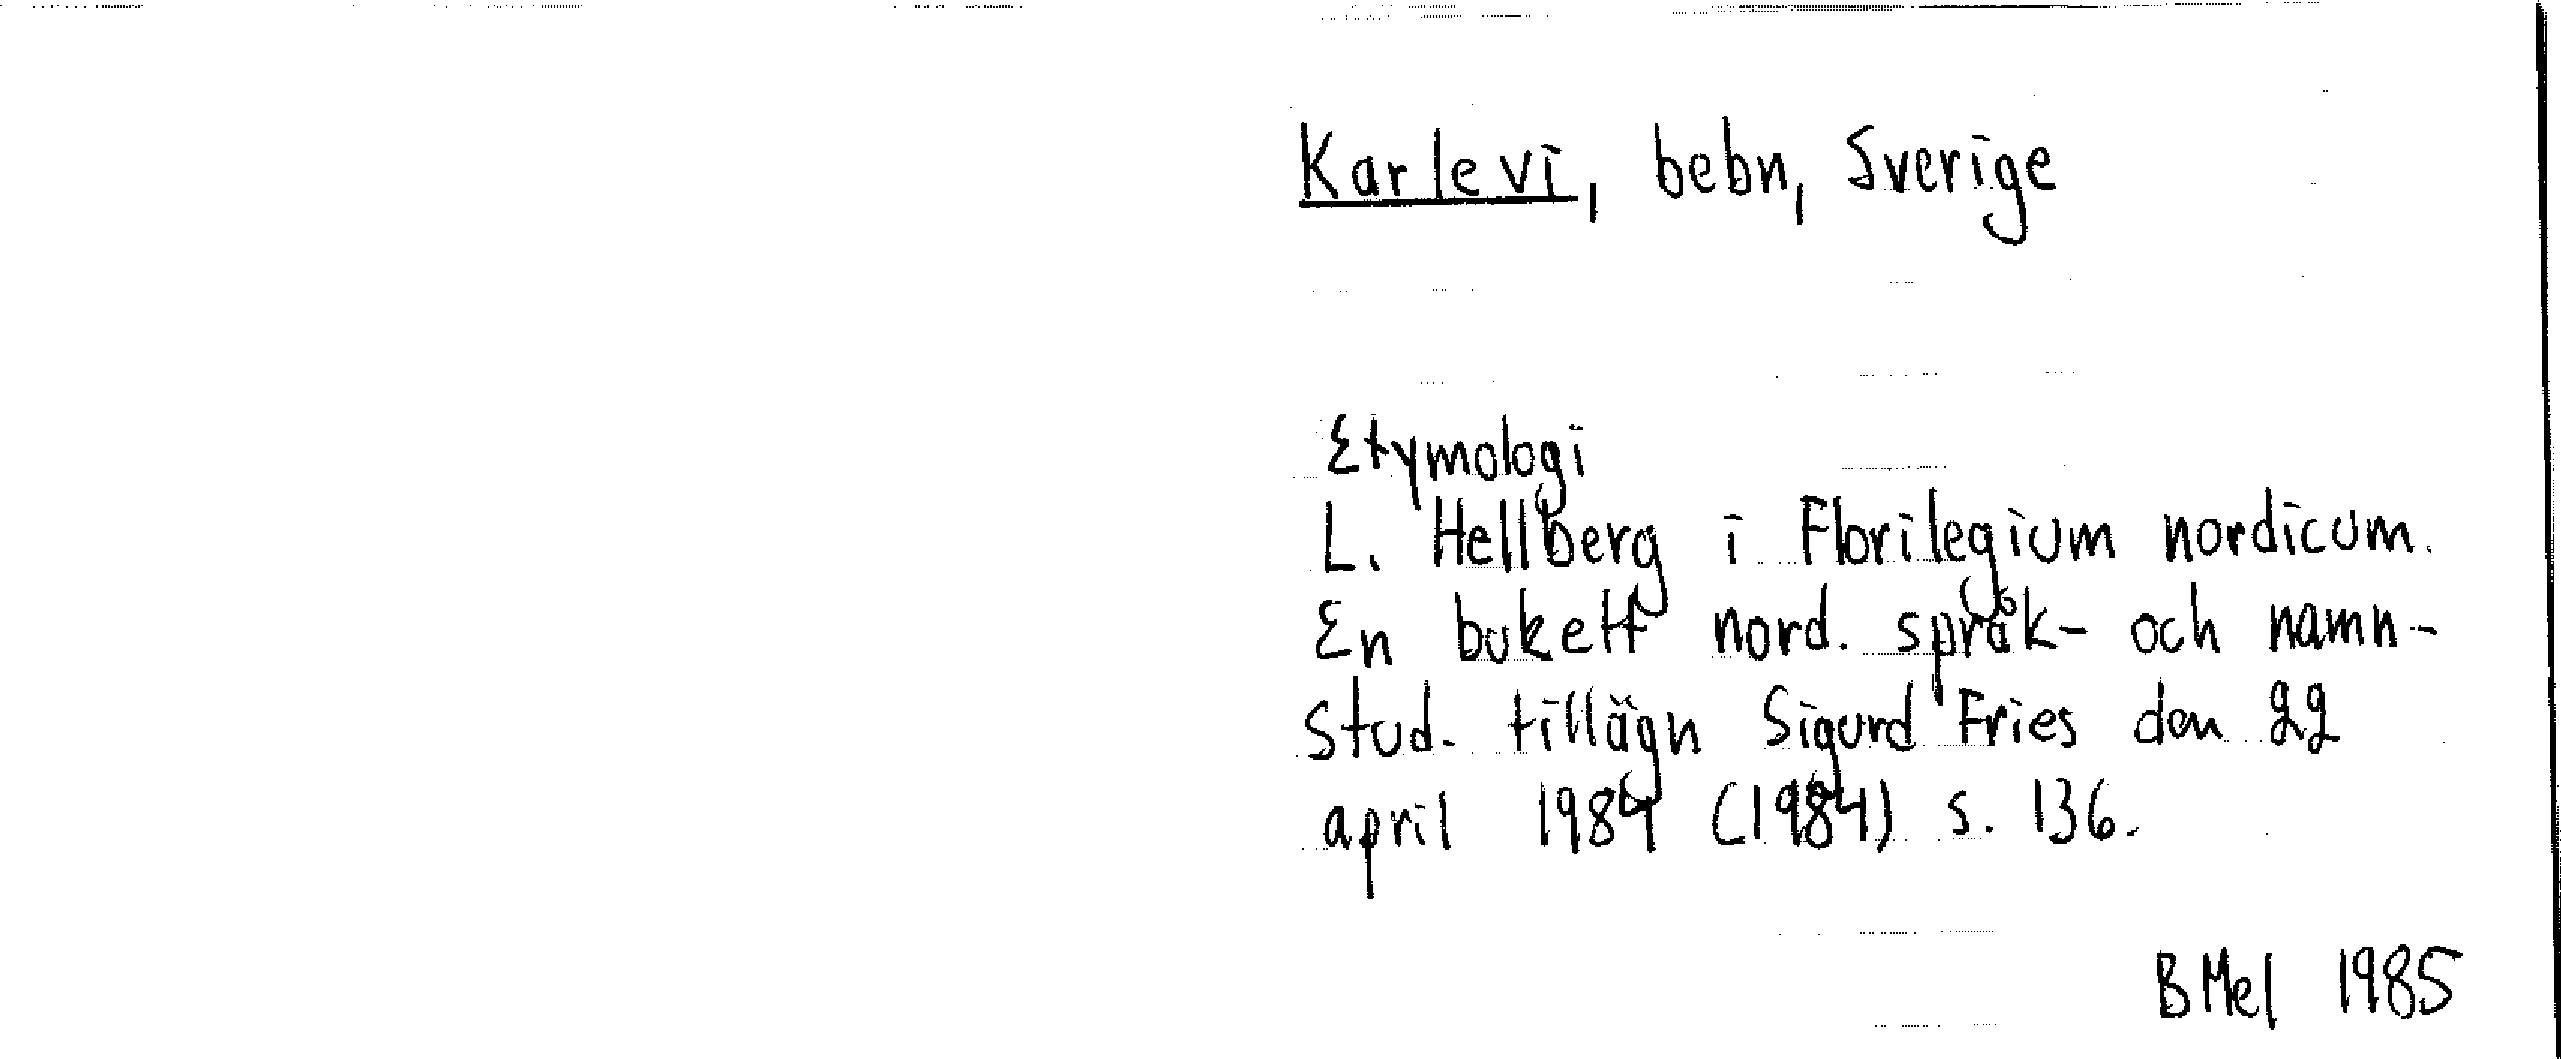 Karlevi, bebn, Sverige
Etymologi
L. Hellberg i Florilegium nordicum.
En bukett nord. språk- och namn-
stud. tillägn Sigurd Fries den 22
april 1984 (1984) s. 136.
BMel 1985